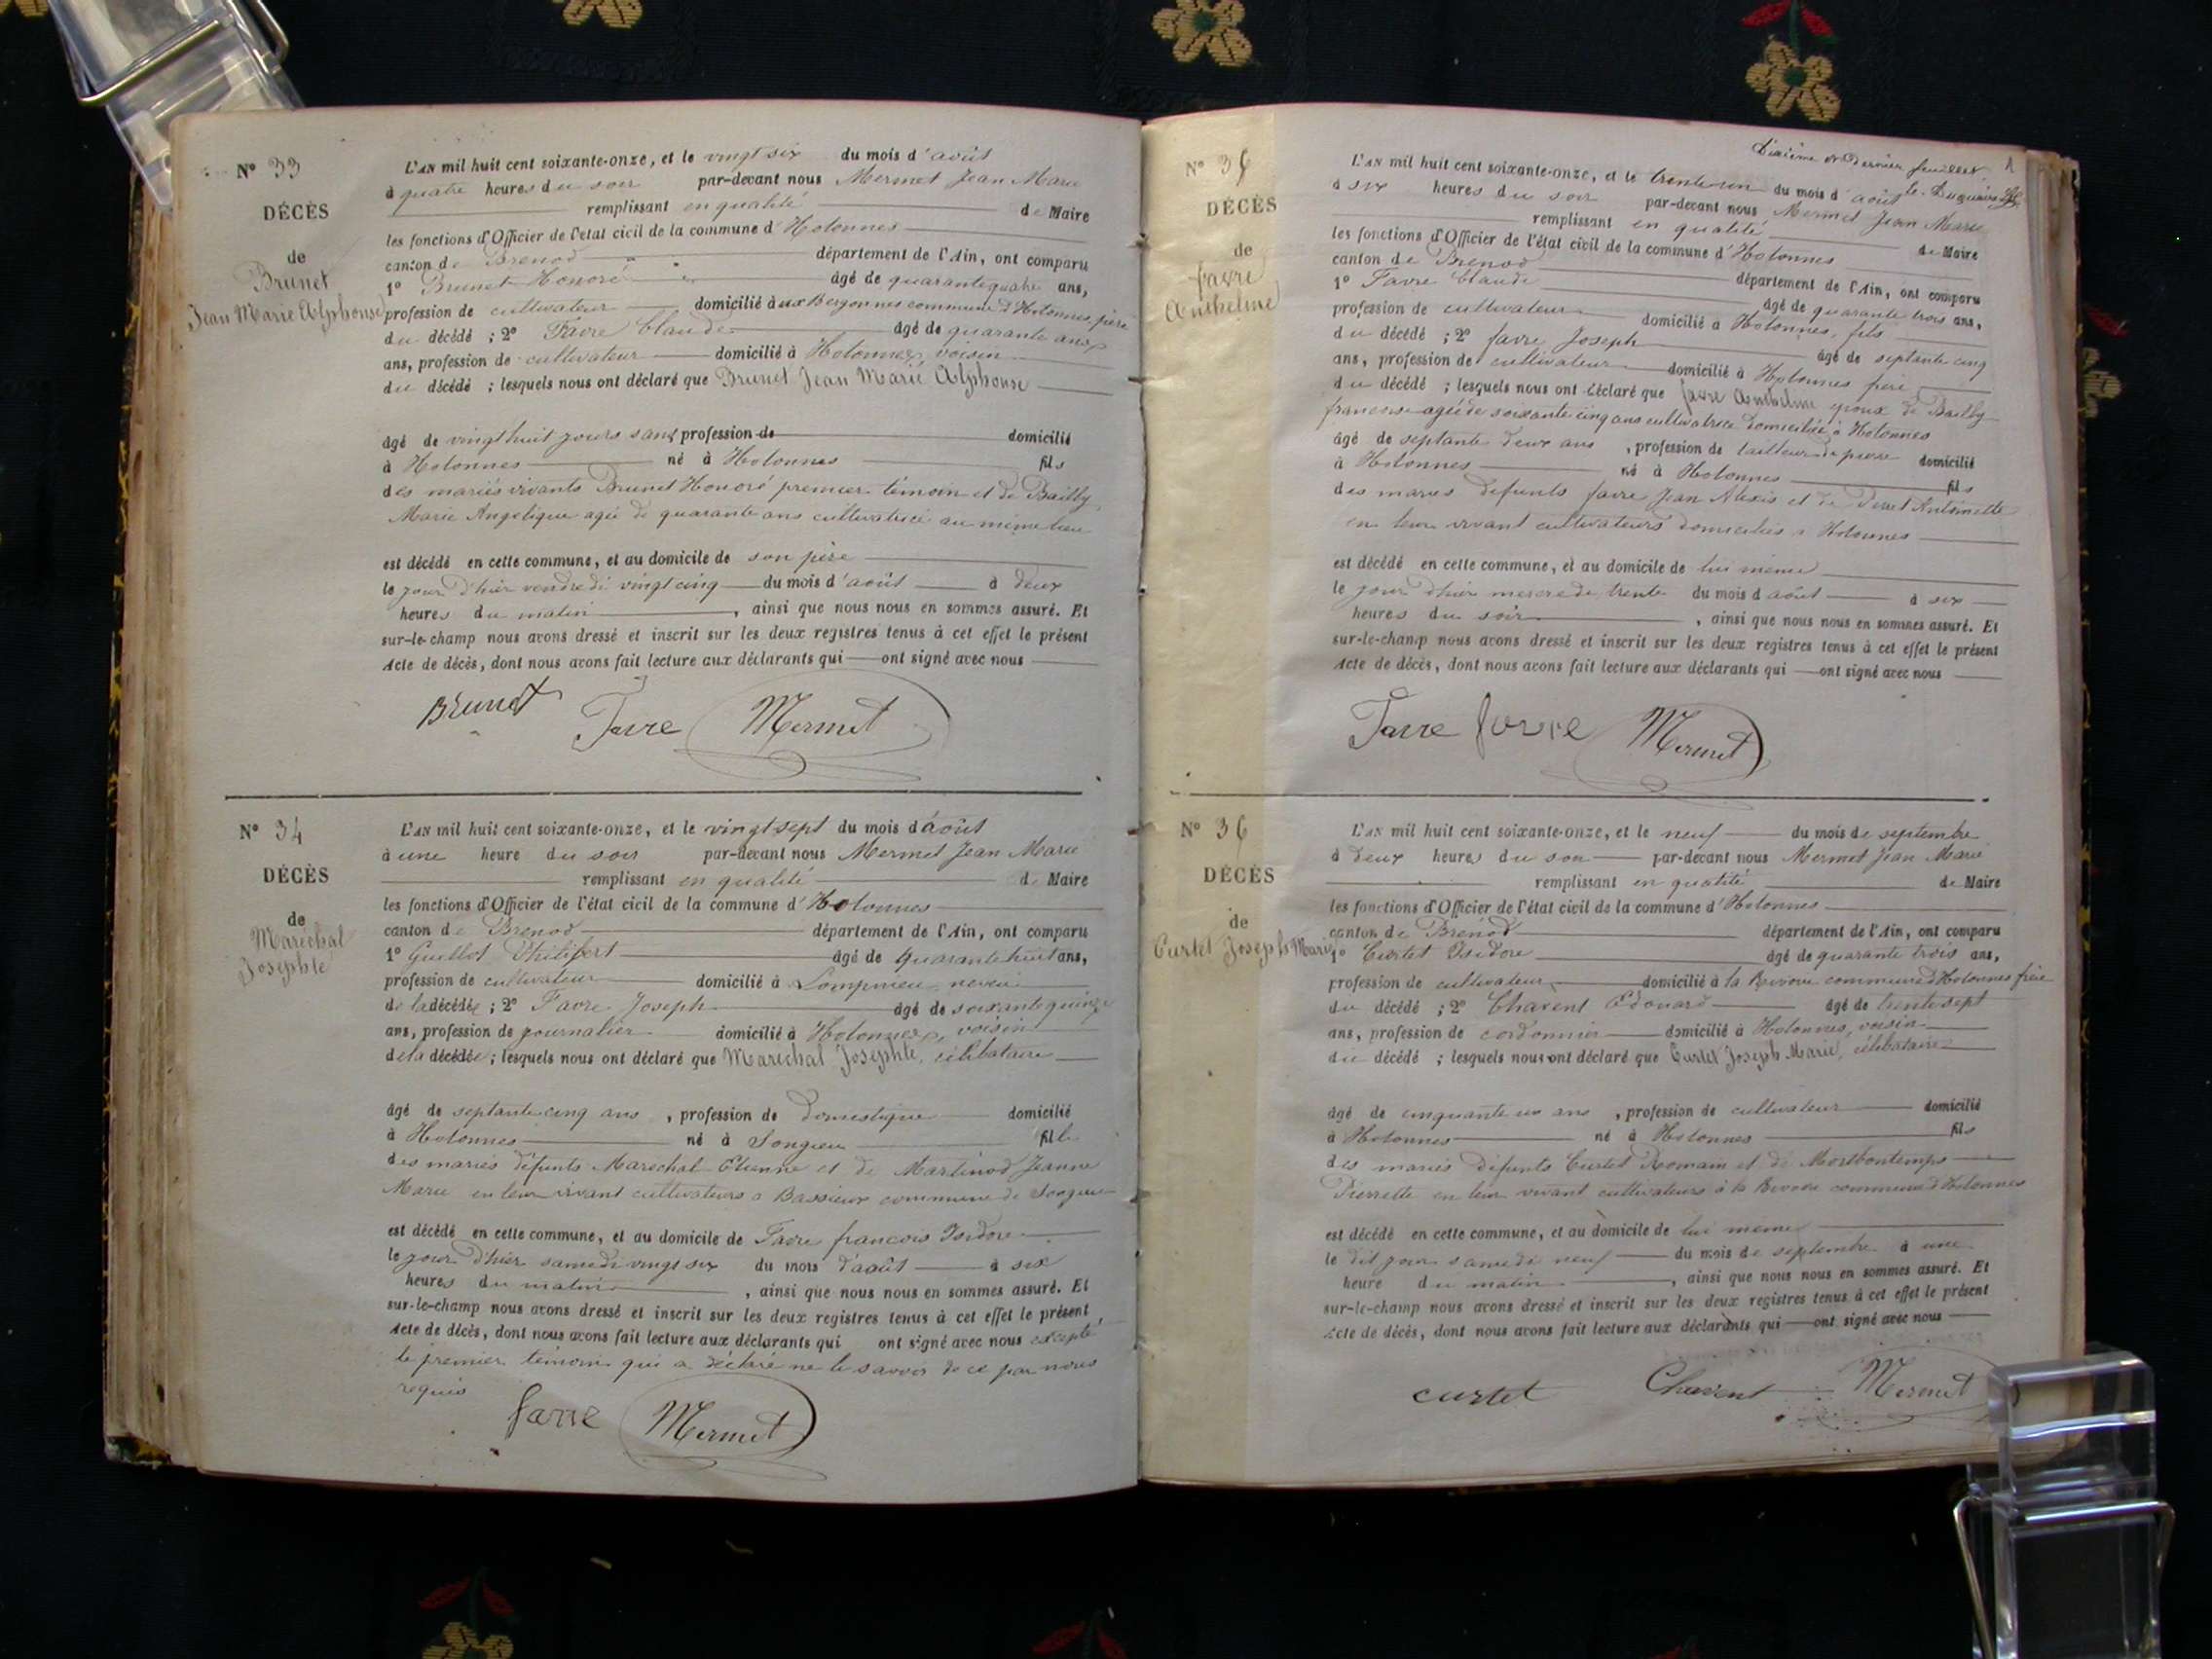 N° 33
DÉCÈS
de
Brunet
Jean Marie Alphonse
L'AN mil huit cent soixante-onze, et le vingt six du mois d'août
à quatre heures du soir par-devant nous Mermet Jean Marie
remplissant en qualité de Maire
les fonctions d'Officier de l'état civil de la commune d'Hotonnes
canton de Brenod département de l'Ain, ont comparu
1° Brunet Honoré âgé de quarante quatre ans,
profession de cultivateur domicilié à aux Bergonnes commune d'Hotonnes, père
du décédé ; 2° Favre Claude âgé de quarante ans
ans, profession de cultivateur domicilié à Hotonnes, voisin
du décédé ; lesquels nous ont déclaré que Brunet Jean Marie Alphonse
âgé de vingt huit jours sans profession de domicilié
à Hotonnes né à Hotonnes fils
des mariés vivants Brunet Honoré premier témoin et de Bailly
Marie Angélique agée de quarante ans cultivatrice au même lieu
est décédé en cette commune, et au domicile de son père
le jour d'hier vendredi vingt cinq du mois d'août à deux
heures du matin, ainsi que nous nous en sommes assuré. Et
sur-le-champ nous avons dressé et inscrit sur les deux registres tenus à cet effet le présent
Acte de décès, dont nous avons fait lecture aux déclarants qui ont signé avec nous
Brunet Favre Mermet
N° 34
DÉCÈS
de
Maréchal
Josephte
L'AN mil huit cent soixante-onze, et le vingt sept du mois d'août
à une heure du soir par-devant nous Mermet Jean Marie
remplissant en qualité de Maire
les fonctions d'Officier de l'état civil de la commune d'Hotonnes
canton de Brenod département de l'Ain, ont comparu
1° Guillot Philibert âgé de quarante huit ans,
profession de cultivateur domicilié à Lompnieu neveu
de la décédée ; 2° Favre Joseph âgé de soixante quinze
ans, profession de journalier domicilié à Hotonnes, voisin
de la décédée ; lesquels nous ont déclaré que Maréchal Josephte, célibataire
âgé de septante cinq ans, profession de domestique domicilié
à Hotonnes né à Songieu fille
des mariés défunts Maréchal Etienne et de Martinod Jeanne
Marie en leur vivant cultivateurs à Bassieux commune de Songieu
est décédé en cette commune, et au domicile de Favre françois Isidore
le jour d'hier samedi vingt six du mois d'août à six
heures du matin, ainsi que nous nous en sommes assuré. Et
sur-le-champ nous avons dressé et inscrit sur les deux registres tenus à cet effet le présent
Acte de décès, dont nous avons fait lecture aux déclarants qui ont signé avec nous excepté
le premier témoin qui a déclaré ne le savoir de ce par nous
requis
favre Mermet
Dixième et dernier feuillet
N° 35
DÉCÈS
de
favre
Anthelme
L'AN mil huit cent soixante-onze, et le trente un du mois d'août
à six heures du soir par-devant nous Mermet Jean Marie
remplissant en qualité de Maire
les fonctions d'Officier de l'état civil de la commune d'Hotonnes
canton de Brenod département de l'Ain, ont comparu
1° Favre Claude âgé de quarante trois ans,
profession de cultivateur domicilié à Hotonnes, fils
du décédé ; 2° favre Joseph âgé de septante cinq
ans, profession de cultivateur domicilié à Hotonnes frère
du décédé ; lesquels nous ont déclaré que favre Anthelme époux de Bailly
françoise agée de soixante cinq ans cultivatrice domiciliée à Hotonnes
âgé de septante deux ans, profession de tailleur de pierre domicilié
à Hotonnes né à Hotonnes fils
des mariés défunts favre Jean Alexis et de Antoinette
en leur vivant cultivateurs domiciliés à Hotonnes
est décédé en cette commune, et au domicile de lui même
le jour d'hier mercredi trente du mois d'août à six
heures du soir, ainsi que nous nous en sommes assuré. Et
sur-le-champ nous avons dressé et inscrit sur les deux registres tenus à cet effet le présent
Acte de décès, dont nous avons fait lecture aux déclarants qui ont signé avec nous
Favre favre Mermet
N° 36
DÉCÈS
de
Curtet Joseph Marie
L'AN mil huit cent soixante-onze, et le neuf du mois de septembre
à deux heures du soir par-devant nous Mermet Jean Marie
remplissant en qualité de Maire
les fonctions d'Officier de l'état civil de la commune d'Hotonnes
canton de Brénod département de l'Ain, ont comparu
1° Curtet Isidore âgé de quarante trois ans,
profession de cultivateur domicilié à la Rivoire commune d'Hotonnes frère
du décédé ; 2° Chavent Edouard âgé de trente sept
ans, profession de cordonnier domicilié à Hotonnes, voisin
du décédé ; lesquels nous ont déclaré que Curtet Joseph Marie, célibataire
âgé de cinquante un ans, profession de cultivateur domicilié
à Hotonnes né à Hotonnes fils
des mariés défunts Curtet Romain et de Mortbontemps
Pierrette en leur vivant cultivateurs à la Rivoire commune d'Hotonnes
est décédé en cette commune, et au domicile de lui même
le dit jour samedi neuf du mois de septembre à une
heure du matin, ainsi que nous nous en sommes assuré. Et
sur-le-champ nous avons dressé et inscrit sur les deux registres tenus à cet effet le présent
Acte de décès, dont nous avons fait lecture aux déclarants qui ont signé avec nous
curtet Chavent Mermet